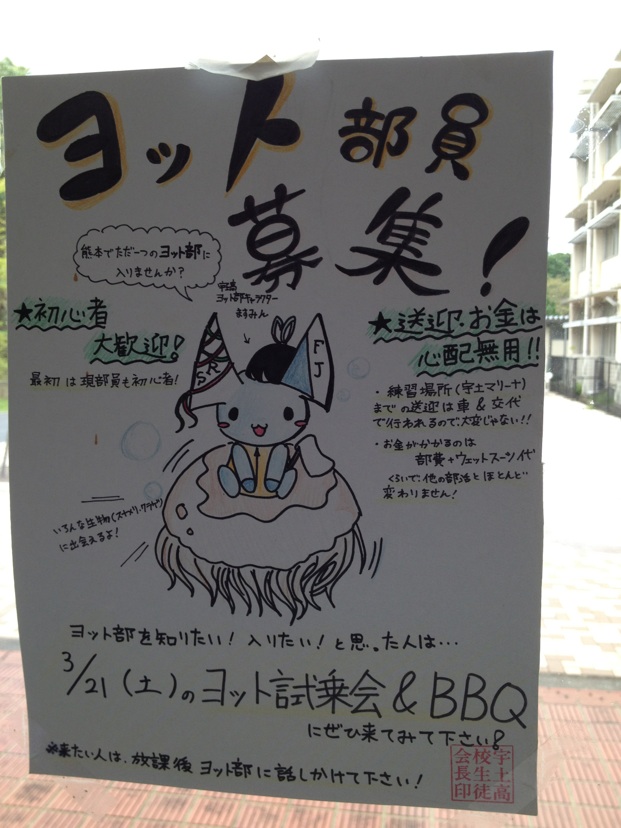 ヨット部員
募集!
熊本でただ一つのヨット部に
入りませんか?
宇高
ヨット部キャラクター
★初心者
大歓迎!
最初は現部員も初心者!
SRS
FJ
★送迎・お金は
心配無用!!
・練習場所(宇土マリーナ)
までの送迎は車&交代
で行われるので、大変じゃない!!
・お金がかかるのは
部費+ウェットスーツ代
くらいで、他の部活とほとんど
変わりません!
いろんな生物(スナメリ、クラゲ)
に出会えるよ!
ヨット部を知りたい!入りたい!と思った人は…
3/21(土)のヨット試乗会&BBQ
にぜひ来てみて下さい!
※来たい人は、放課後ヨット部に話しかけて下さい!
宇土高
校生徒
会長印